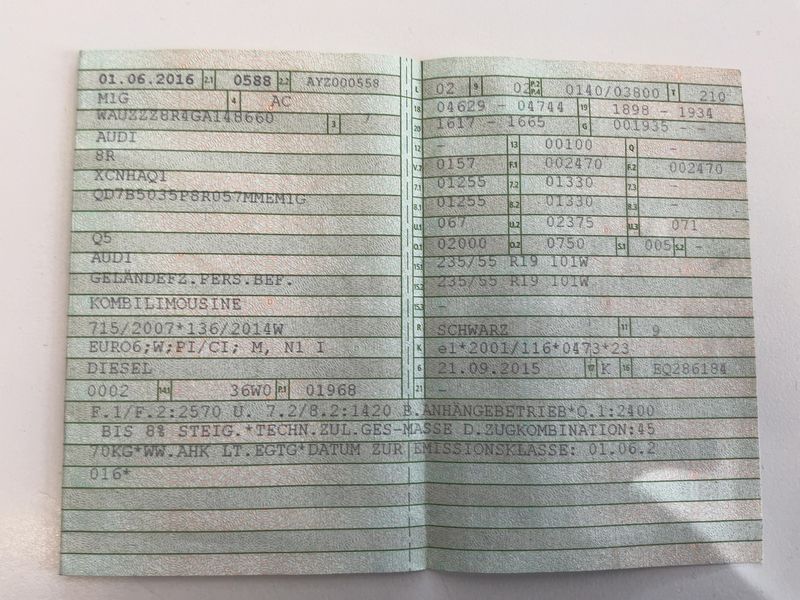 01.06.2016 2.1 0588 2.2 AYZ000558
M1G 4 AC
WAUZZZ8R4GA148660 3 7
AUDI
8R
XCNHAQ1
QD7B5035PSR057MMEM1G
Q5
AUDI
GELÄNDEFZ.PERS.BEF.
KOMBILIMOUSINE
715/2007*136/2014W
EURO6;W;PI/CI; M, N1 I
DIESEL
0002 14.1 36W0 P.1 01968
L 02 9 02 P.2 P.4 0140/03800 T 210
18 04629 - 04744 19 1898 - 1934
20 1617 - 1665 G 001935 - -
12 - 13 00100 Q -
V.7 0157 F.1 002470 F.2 002470
7.1 01255 7.2 01330 7.3 -
8.1 01255 8.2 01330 8.3 -
U.1 067 U.2 02375 U.3 071
O.1 02000 O.2 0750 S.1 005 S.2 -
15.1 235/55 R19 101W
15.2 235/55 R19 101W
15.3 -
R SCHWARZ 11 9
K e1*2001/116*0473*23
6 21.09.2015 17 K 16 EQ286184
21 -
F.1/F.2:2570 U. 7.2/8.2:1420 B.ANHÄNGEBETRIEB*O.1:2400
BIS 8% STEIG.*TECHN.ZUL.GES-MASSE D.ZUGKOMBINATION:45
70KG*WW.AHK LT.EGTG*DATUM ZUR EMISSIONSKLASSE: 01.06.2
016*